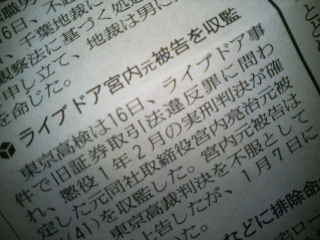 6日、
千葉地裁に
に基づく処
申し立て、地裁は男に
を命じた。
ライブドア宮内元被告を収監
東京高検は16日、ライブドア事
件で旧証券取引法違反罪に問わ
れ、懲役1年2月の実刑判決が確
定した元同社取締役宮内亮治元被
(41)を収監した。宮内元被告は
東京高裁判決を不服として
上告したが、1月7日に
などに排除命